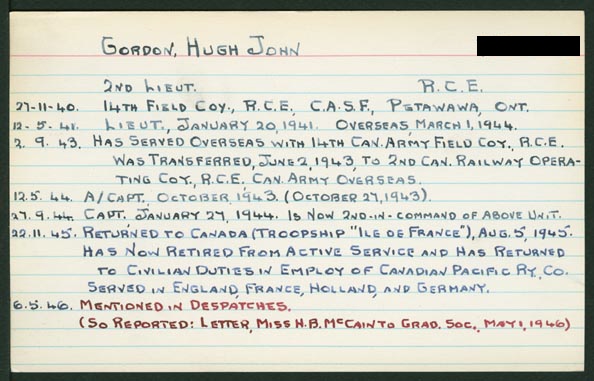 GORDON, HUGH JOHN
2ND LIEUT. R.C.E.
27-11-40. 14TH FIELD COY., R.C.E., C.A.S.F., PETAWAWA, ONT.
12-5-41. LIEUT., JANUARY 20, 1941. OVERSEAS, MARCH 1, 1944.
2. 9. 43. HAS SERVED OVERSEAS WITH 14TH CAN. ARMY FIELD COY., R.C.E.
WAS TRANSFERRED, JUNE 2, 1943, TO 2ND CAN. RAILWAY OPERA-
TING COY., R.C.E. CAN. ARMY OVERSEAS.
12.5. 44. A/CAPT., OCTOBER, 1943. (OCTOBER 27, 1943).
27.9.44. CAPT. JANUARY 27, 1944. IS NOW 2ND-IN-COMMAND OF ABOVE UNIT.
22.11.45. RETURNED TO CANADA (TROOPSHIP "ILE DE FRANCE"), AUG. 5, 1945.
HAS NOW RETIRED FROM ACTIVE SERVICE AND HAS RETURNED
TO CIVILIAN DUTIES IN EMPLOY OF CANADIAN PACIFIC RY. CO.
SERVED IN ENGLAND, FRANCE, HOLLAND, AND GERMANY.
6.5.46. MENTIONED IN DESPATCHES.
(SO REPORTED: LETTER, MISS H.B. MCCAIN TO GRAD. SOC., MAY 1, 1946)